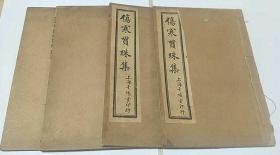 傷寒貫珠集
上海千頃堂印行
傷寒貫珠集
上海千頃堂印行